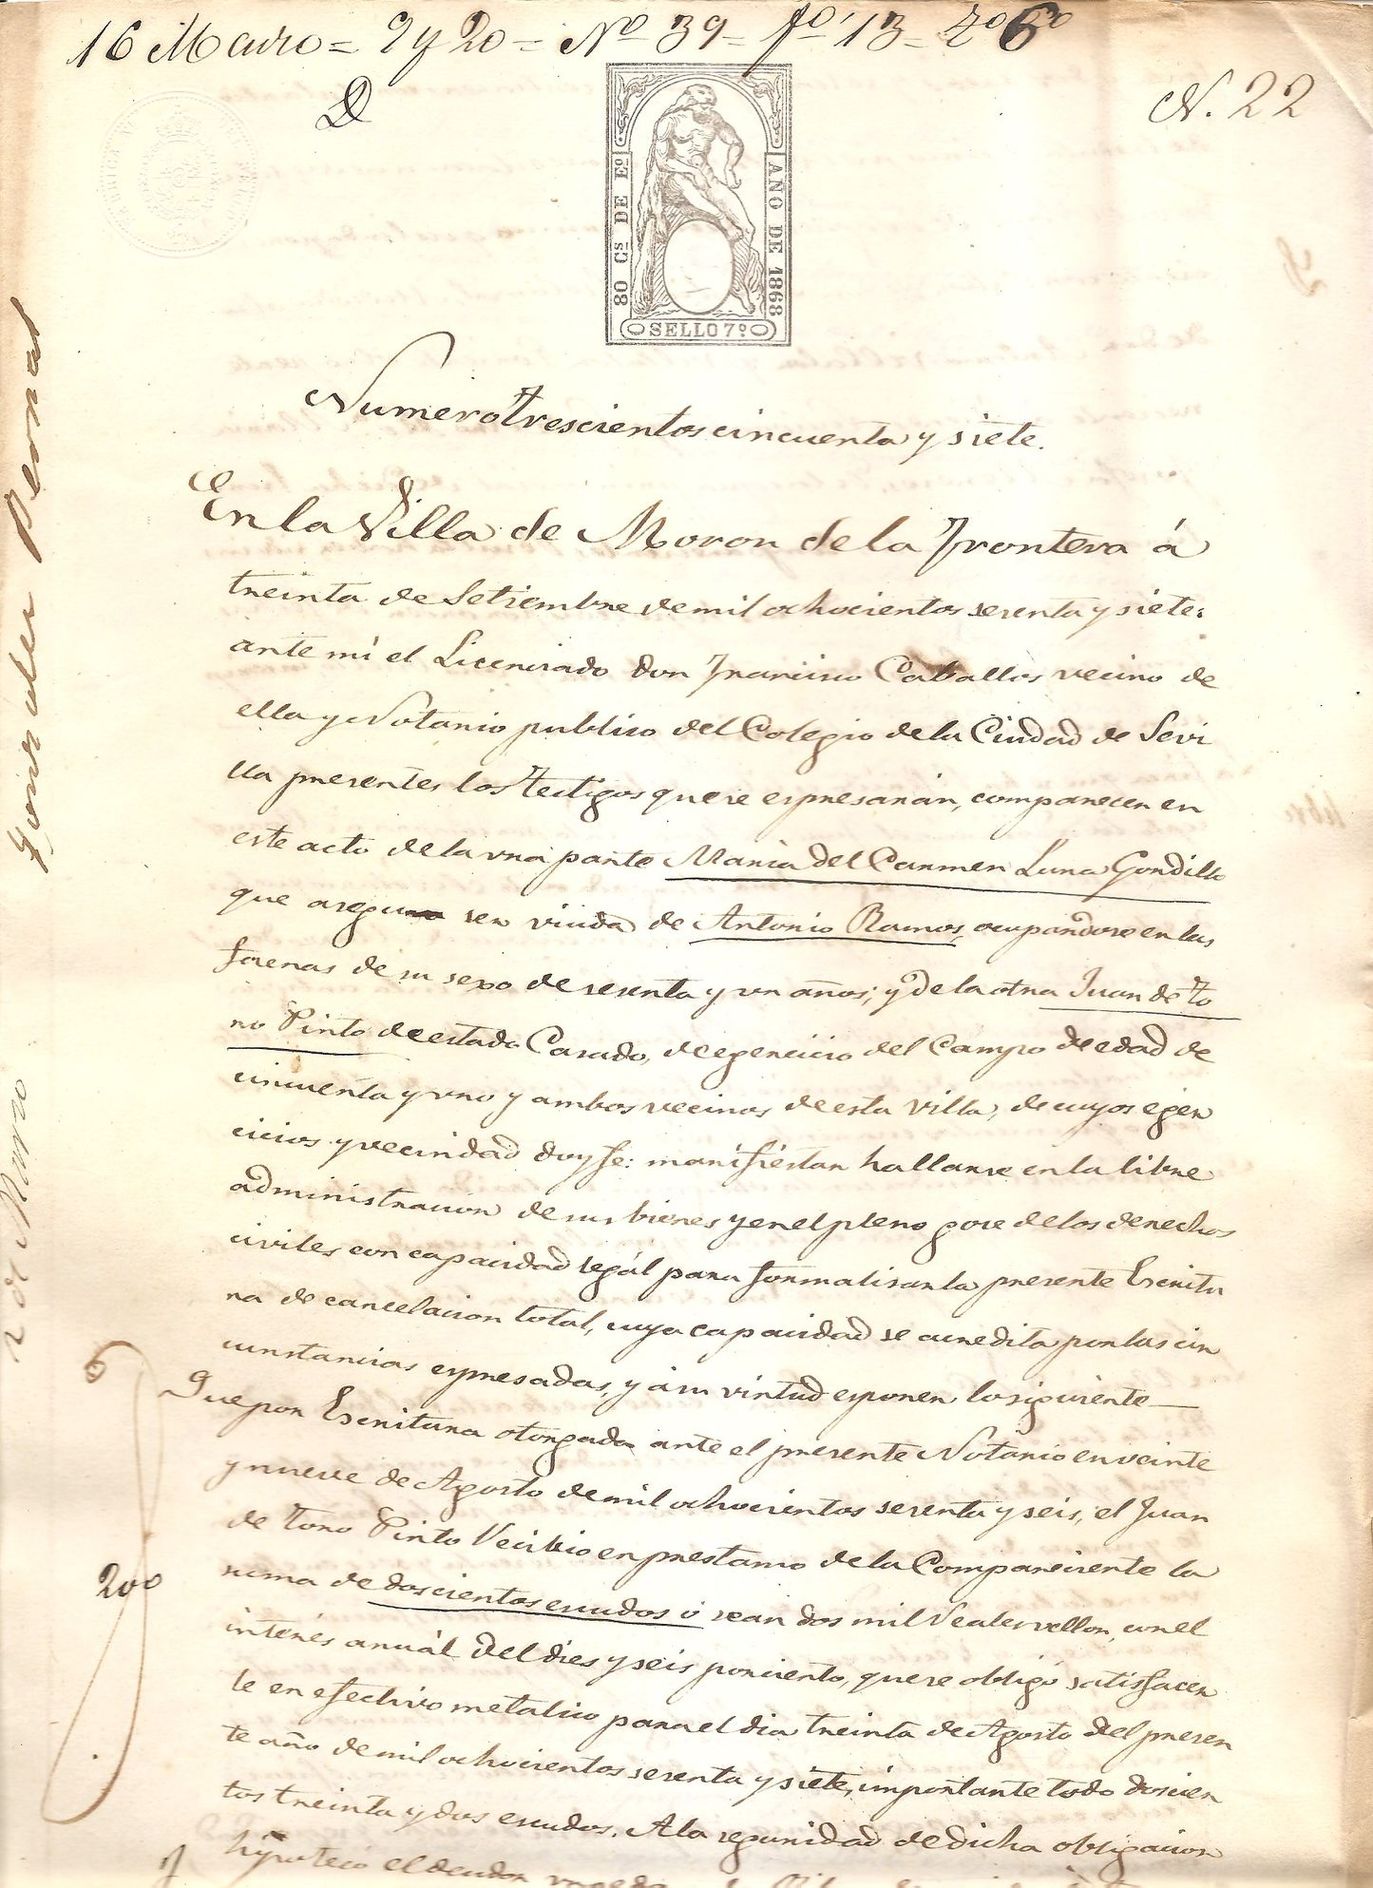 16 Marzo = 9 y 20 = Nº 39 = fº 13 =
D
N. 22
80 Cs DE Eº
AÑO DE 1868
SELLO 7º
Numero trescientos cincuenta y siete.
En la Villa de Moron de la Frontera á
treinta de Setiembre de mil ochocientos sesenta y siete:
ante mi el Licenciado don Francisco Caballos vecino de
ella y Notario publico del Colegio de la Ciudad de Sevi
lla presentes los testigos que se espresarán, comparecen en
este acto de la una parte Maria del Carmen Luna Gondillo
que asegura ser viuda de Antonio Ramos, ocupandose en las
faenas de su sexo de sesenta y un años; y de la otra Juan de To
ro Pinto de estado Casado, de egercicio del Campo de edad de
cincuenta y uno y ambos vecinos de esta villa, de cuyos eger
cicios y vecindad doy fe: manifiestan hallarse en la libre
administracion de sus bienes y en el pleno goce de los derechos
civiles con capacidad legál para formalisar la presente Escritu
ra de cancelacion total, cuya capacidad se acredita por las cir
cunstancias espresadas, y á su virtud esponen lo siguiente
Que por Escritura otorgada ante el presente Notario en veinte
y nueve de Agosto de mil ochocientos sesenta y seis, el Juan
de Toro Pinto Recibio en prestamo de la Compareciente la
suma de doscientos escudos ó sean dos mil Reales vellon, con el
interés anuál del dies y seis por ciento, que se obligó satisfacer
le en efectivo metalico para el dia treinta de Agosto del presen
te año de mil ochocientos sesenta y siete, importante todo doscien
tos treinta y dos escudos. A la seguridad de dicha obligacion
hipoteco el deudor
200